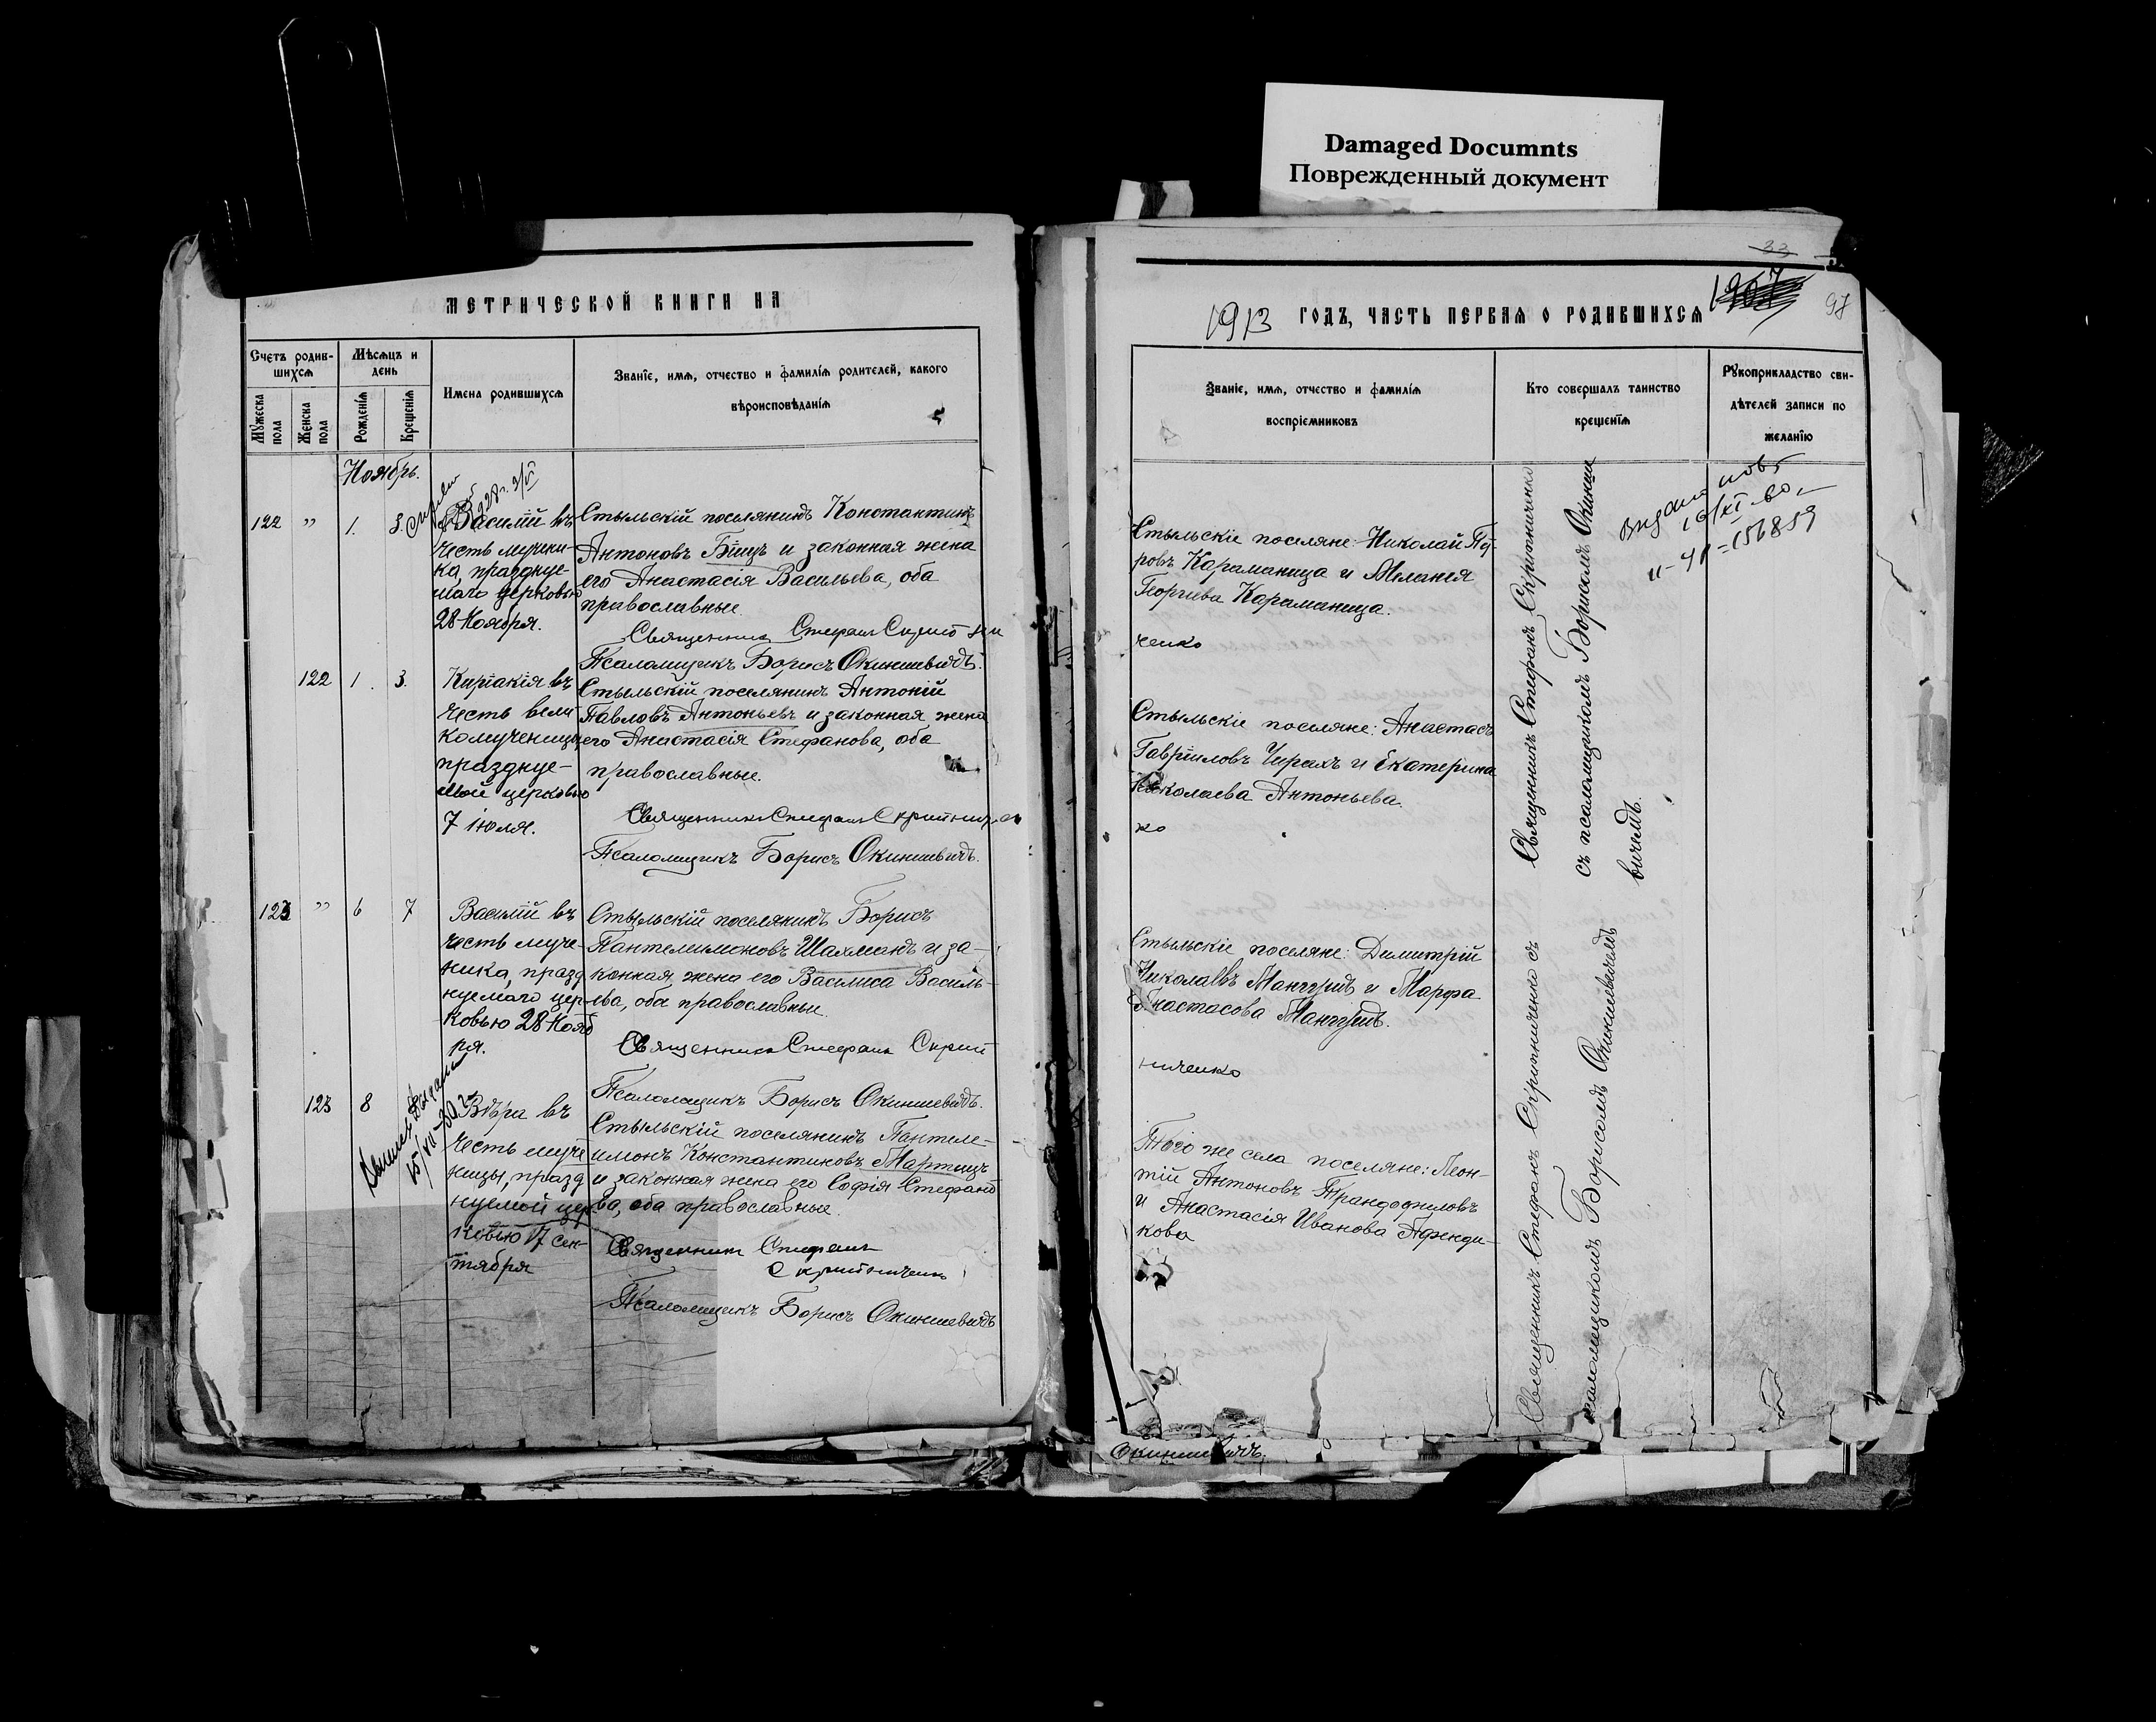 Damaged Documnts
Поврежденный документ
МЕТРИЧЕСКОЙ КНИГИ НА
Счетъ родив-
шихся
Мѣсяцъ и
день
Мужеска
пола
Женска
пола
Рожденія
Крещенія
Имена родившихся
Званіе, имя, отчество и фамилія родителей, какого
вѣроисповѣданія
Ноябрь.
122 " 1. 3.
Василій въ
честь мучени-
ка, праздhуе-
маго церковью
28 Ноября.
Стыльскій поселянинъ Константинъ
Антоновъ Бищъ и законная жена
его Анастасія Васильева, оба
православные.
Священникъ Стефанъ Скрип
Псаломщикъ Борисъ Окиншевичъ.
122 1. 3.
Киріакія въ
честь вели-
комученицы
праздhуе-
мой церковью
7 іюля.
Стыльскій поселянинъ Антоній
Павловъ Антоньевъ и законная жена
его Анастасія Стефанова, оба
православные.
Священникъ Стефанъ Скрипничен
Псаломщикъ Борисъ Окиншевичъ.
123 " 6 7
Василій въ
честь муче-
ника, празд
нуемаго цер-
ковью 28 Нояб
ря.
Стыльскій поселянинъ Борисъ
Пантелимоновъ Шахманъ и за-
конная жена его Василиса Василь-
ева, оба православные.
Священникъ Стефанъ Скрип
Псаломщикъ Борисъ Окиншевичъ.
123 8
15/VII-30 г.
Вѣра въ
честь муче
ницы, празд
нуемой цер-
ковью 17 сен-
тября
Стыльскій поселянинъ Пантеле-
имонъ Константиновъ Мартищъ
и законная жена его Софія Стефано
ва, оба православные.
Священникъ Стефанъ
Скрипниченко
Псаломщикъ Борисъ Окиншевичъ
33
1913 ГОДЪ, ЧАСТЬ ПЕРВАЯ О РОДИВШИХСЯ
97
Званіе, имя, отчество и фамилія
воспріемниковъ
Кто совершалъ таинство
крещенія
Рукоприкладство сви-
дѣтелей записи по
желанію
Стыльскіе поселяне: Николай
ровъ Караманица и Меланія
Георгіева Караманица.
ченко
Стыльскіе поселяне: Анастасъ
Гавріиловъ Чирахъ и Екатерина
Николаева Антоньева.
ко
Стыльскіе поселяне: Димитрій
Николаевъ Мангушъ и Марфа
Анастасова Мангушъ.
ниченко
Того же села поселяне: Леон-
тій Антоновъ Трандофиловъ
и Анастасія Иванова Афенди-
кова
Окиншевичъ
Священникъ Стефанъ Скрипниченко
съ псаломщикомъ Борисомъ Окинше
вичемъ.
Священникъ Стефанъ Скрипниченко съ
псаломщикомъ Борисомъ Окиншевичемъ
16/XI-60
156859